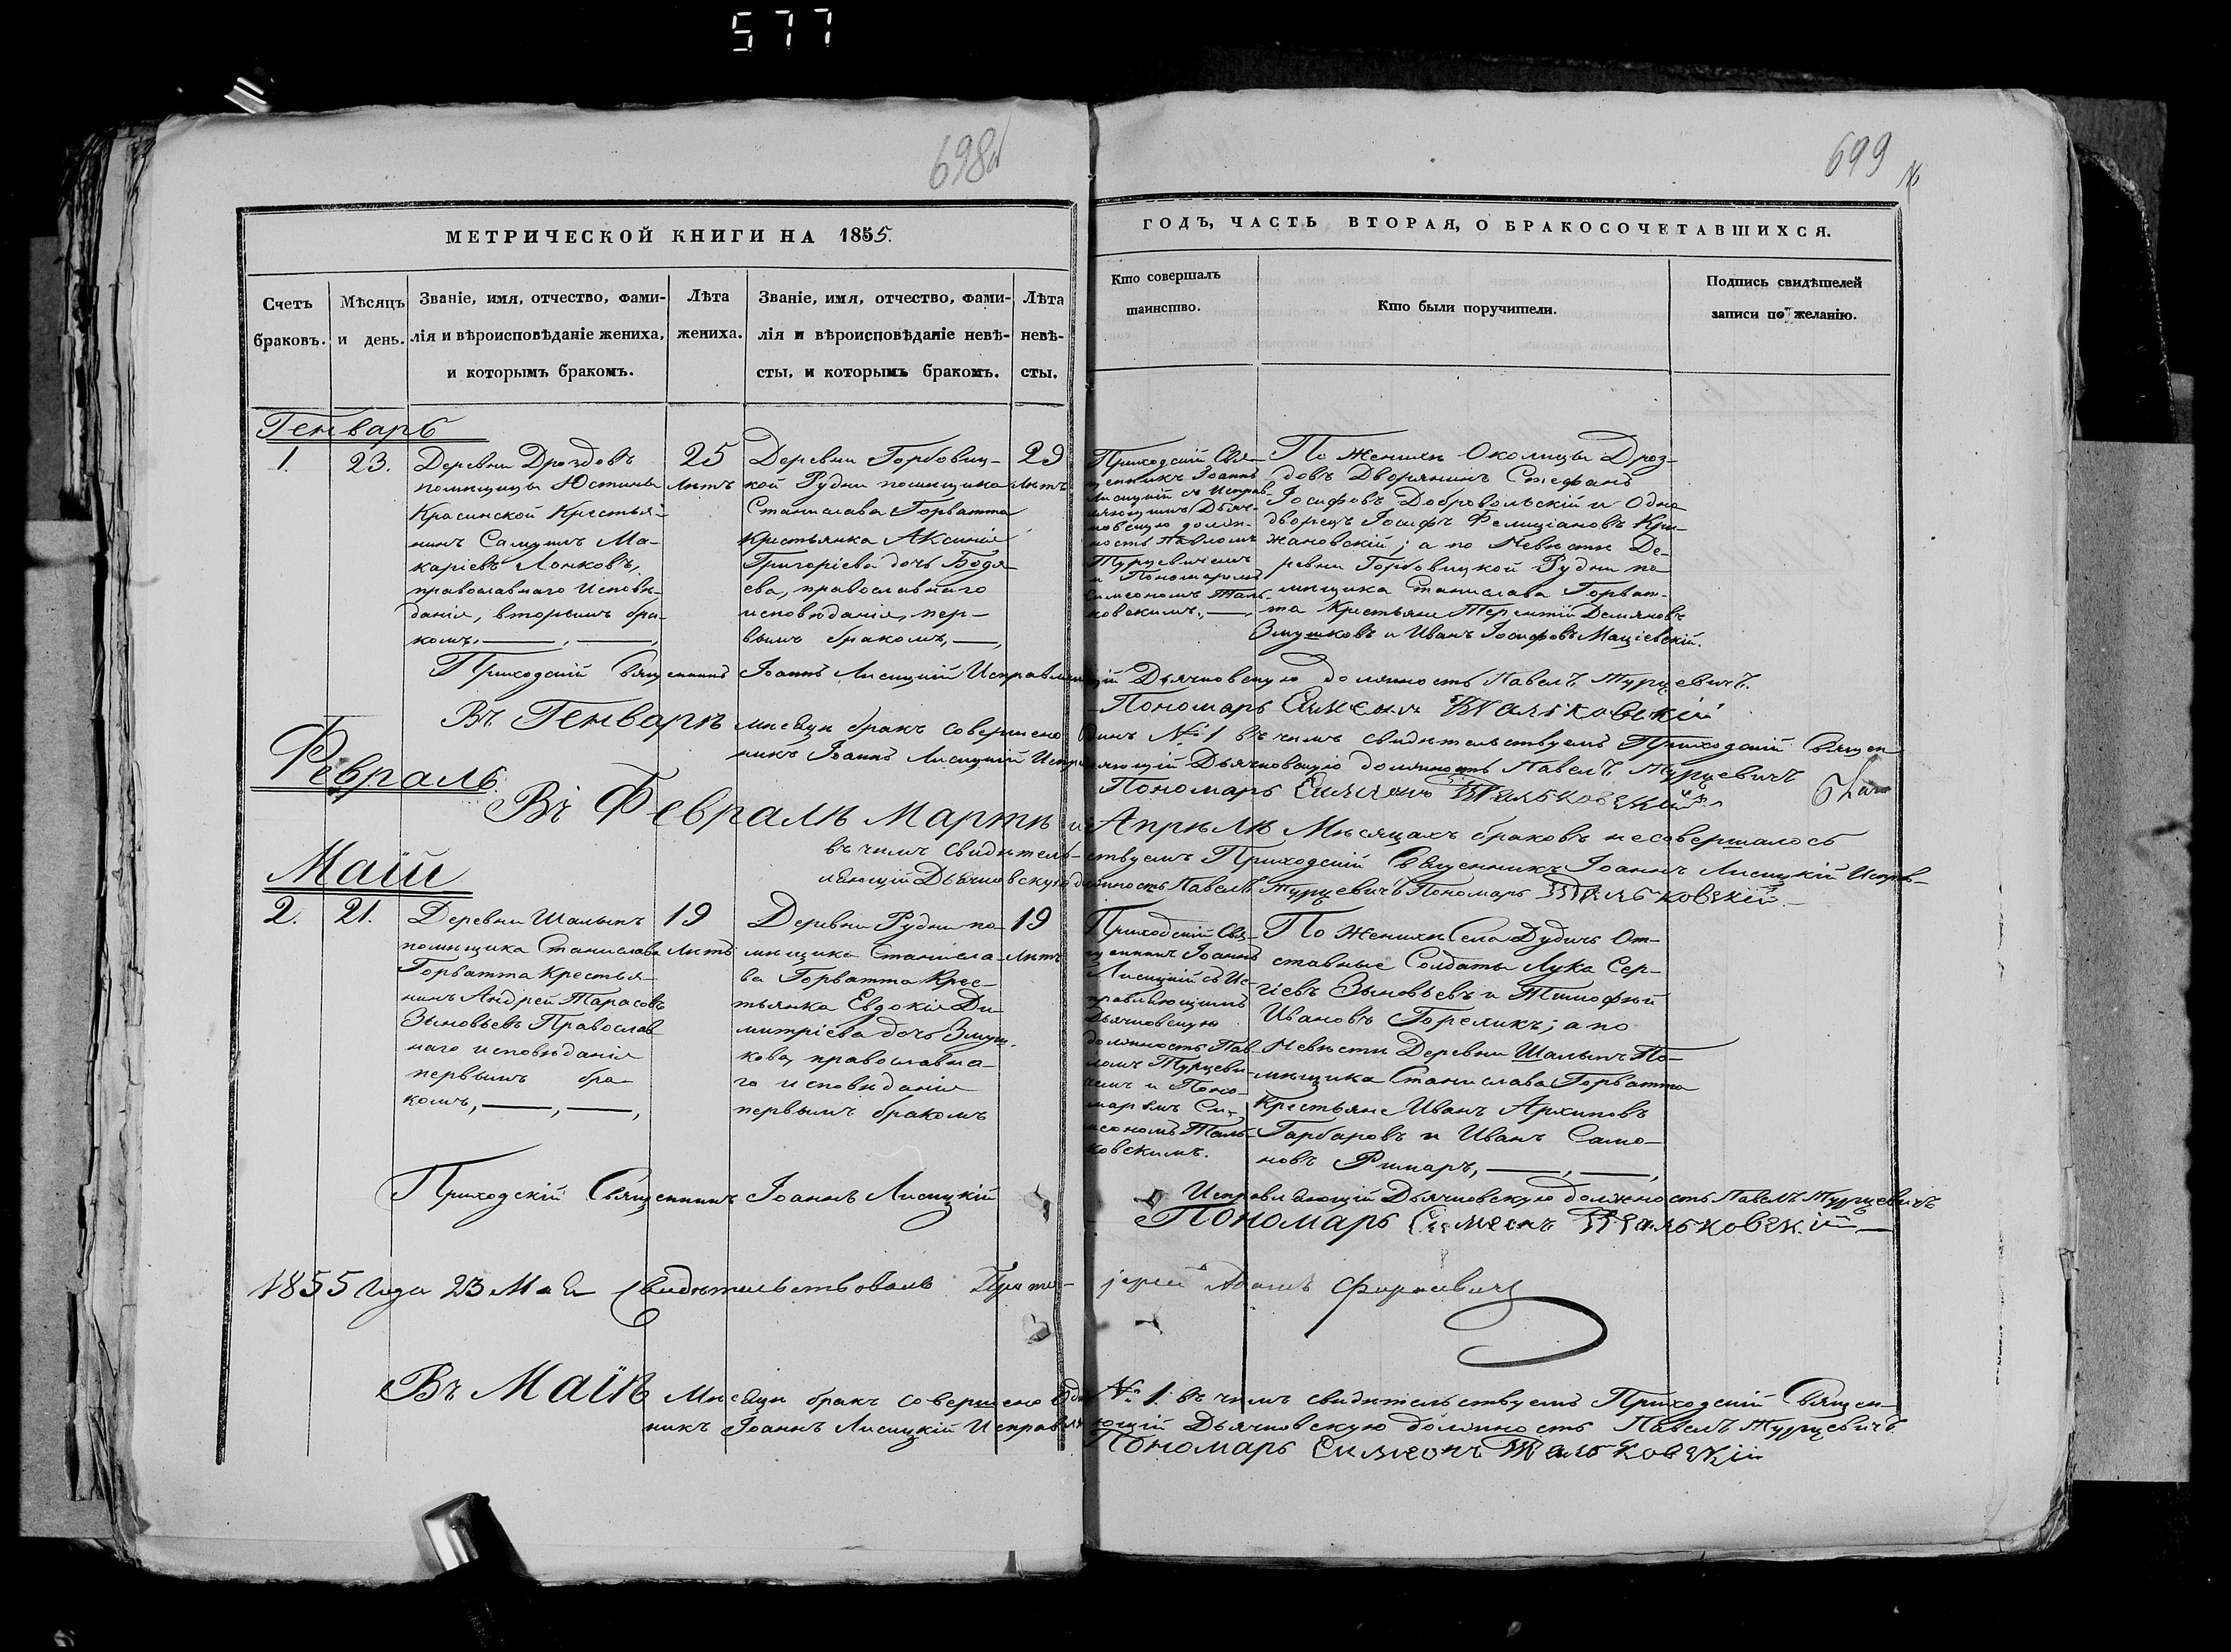 577
698
699
МЕТРИЧЕСКОЙ КНИГИ НА 1855.
Счетъ
браковъ.
Мѣсяцъ
и день.
Званіе, имя, отчество, фами-
лія и вѣроисповѣданіе жениха,
и которымъ бракомъ.
Лѣта
жениха.
Званіе, имя, отчество, фами-
лія и вѣроисповѣданіе невѣ-
сты, и которымъ бракомъ.
Лѣта
невѣ-
сты.
ГОДЪ, ЧАСТЬ ВТОРАЯ, О БРАКОСОЧЕТАВШИХСЯ.
Кто совершалъ
таинство.
Кто были поручители.
Подпись свидѣтелей
записи по желанію.
Генварь
1.
23.
Деревни Дроздовъ
помѣщицы Юстины
Красинской Крестья-
нинъ Самуилъ Ма-
каріевъ Лонковъ,
православнаго Исповѣ-
данія, вторымъ бра-
комъ,
25
лѣтъ
Деревни Горбовиц-
кой Рудни помѣщика
Станислава Горватта
крестьянка Аксинія
Григоріева дочь Бодя
ева, православнаго
исповѣданія, пер-
вымъ бракомъ,
29
лѣтъ
Приходскій Свя-
щенникъ Іоаннъ
Лисицкій съ Исправ-
ляющимъ Дьяч-
ковскую долж-
ность Павломъ
Турцевичемъ
и Пономаремъ
Симеономъ Таль-
ковскимъ,
По Женихѣ Околицы Дроз-
довъ Дворянинъ Стефанъ
Іосифовъ Добровольскій и Одно
дворецъ Іосифъ Фелиціановъ Кри-
жановскій; а по Невѣстѣ Де-
ревни Горбовицкой Рудни по
мѣщика Станислава Горват-
та Крестьяне Терентій Демяновъ
Змушковъ и Иванъ Іосифовъ Маціевскій.
Приходскій Священникъ Іоаннъ Лисицкій Исправляющій Дьячковскую должность Павелъ Турцевичъ.
Пономарь Симеонъ Тальковскій
Въ Генварѣ мѣсяцѣ бракъ совершено Одинъ № 1 въ чемъ свидѣтельствуемъ Приходскій Священ-
никъ Іоаннъ Лисицкій Исправляющій Дьячковскую должность Павелъ Турцевичъ
Пономарь Симеонъ Тальковскій
Февраль
Въ Февралѣ Мартѣ и Апрѣлѣ Мѣсяцахъ браковъ несовершалось
въ чемъ свидѣтель-ствуемъ Приходскій Священникъ Іоаннъ Лисицкій Исправ-
ляющій Дьячковскую должность Павелъ Турцевичъ Пономарь Тальковскій
Маій
2.
21.
Деревни Шалыпъ
помѣщика Станислава
Горватта Крестья-
нинъ Андрей Тарасовъ
Зыновьевъ Православ
наго исповѣданія
первымъ бра-
комъ,
19
лѣтъ
Деревни Рудни по-
мѣщика Станисла-
ва Горватта Крес-
тьянка Евдокія Ди-
митріева дочь Змуш-
кова, православна-
го исповѣданія
первымъ бракомъ
19
лѣтъ
Приходскій Свя-
щенникъ Іоаннъ
Лисицкій съ Ис-
правляющимъ
Дьячковскую
должность Пав-
ломъ Турцеви-
чемъ и Поно-
маремъ Си-
меономъ Таль-
ковскимъ.
По Женихѣ Села Дудичъ От-
ставные Солдаты Лука Сер-
гіевъ Зыновьевъ и Тимофей
Ивановъ Гореликъ; а по
Невѣстѣ Деревни Шалыпъ По-
мѣщика Станислава Горватта
Крестьяне Иванъ Архиповъ
Гарбаровъ и Иванъ Само-
новъ Римаръ,
Приходскій Священникъ Іоаннъ Лисицкій
Исправляющій Дьячковскую должность Павелъ Турцевичъ
Пономарь Симеонъ Тальковскій
1855 Года 23 Мая Свидѣтельствовалъ Прото-іерей Адамъ
Въ Маіѣ Мѣсяцѣ бракъ совершено Одинъ № 1. въ чемъ свидѣтельствуемъ Приходскій Священ-
никъ Іоаннъ Лисицкій Исправляющій Дьячковскую должность Павелъ Турцевичъ
Пономарь Симеонъ Тальковскій